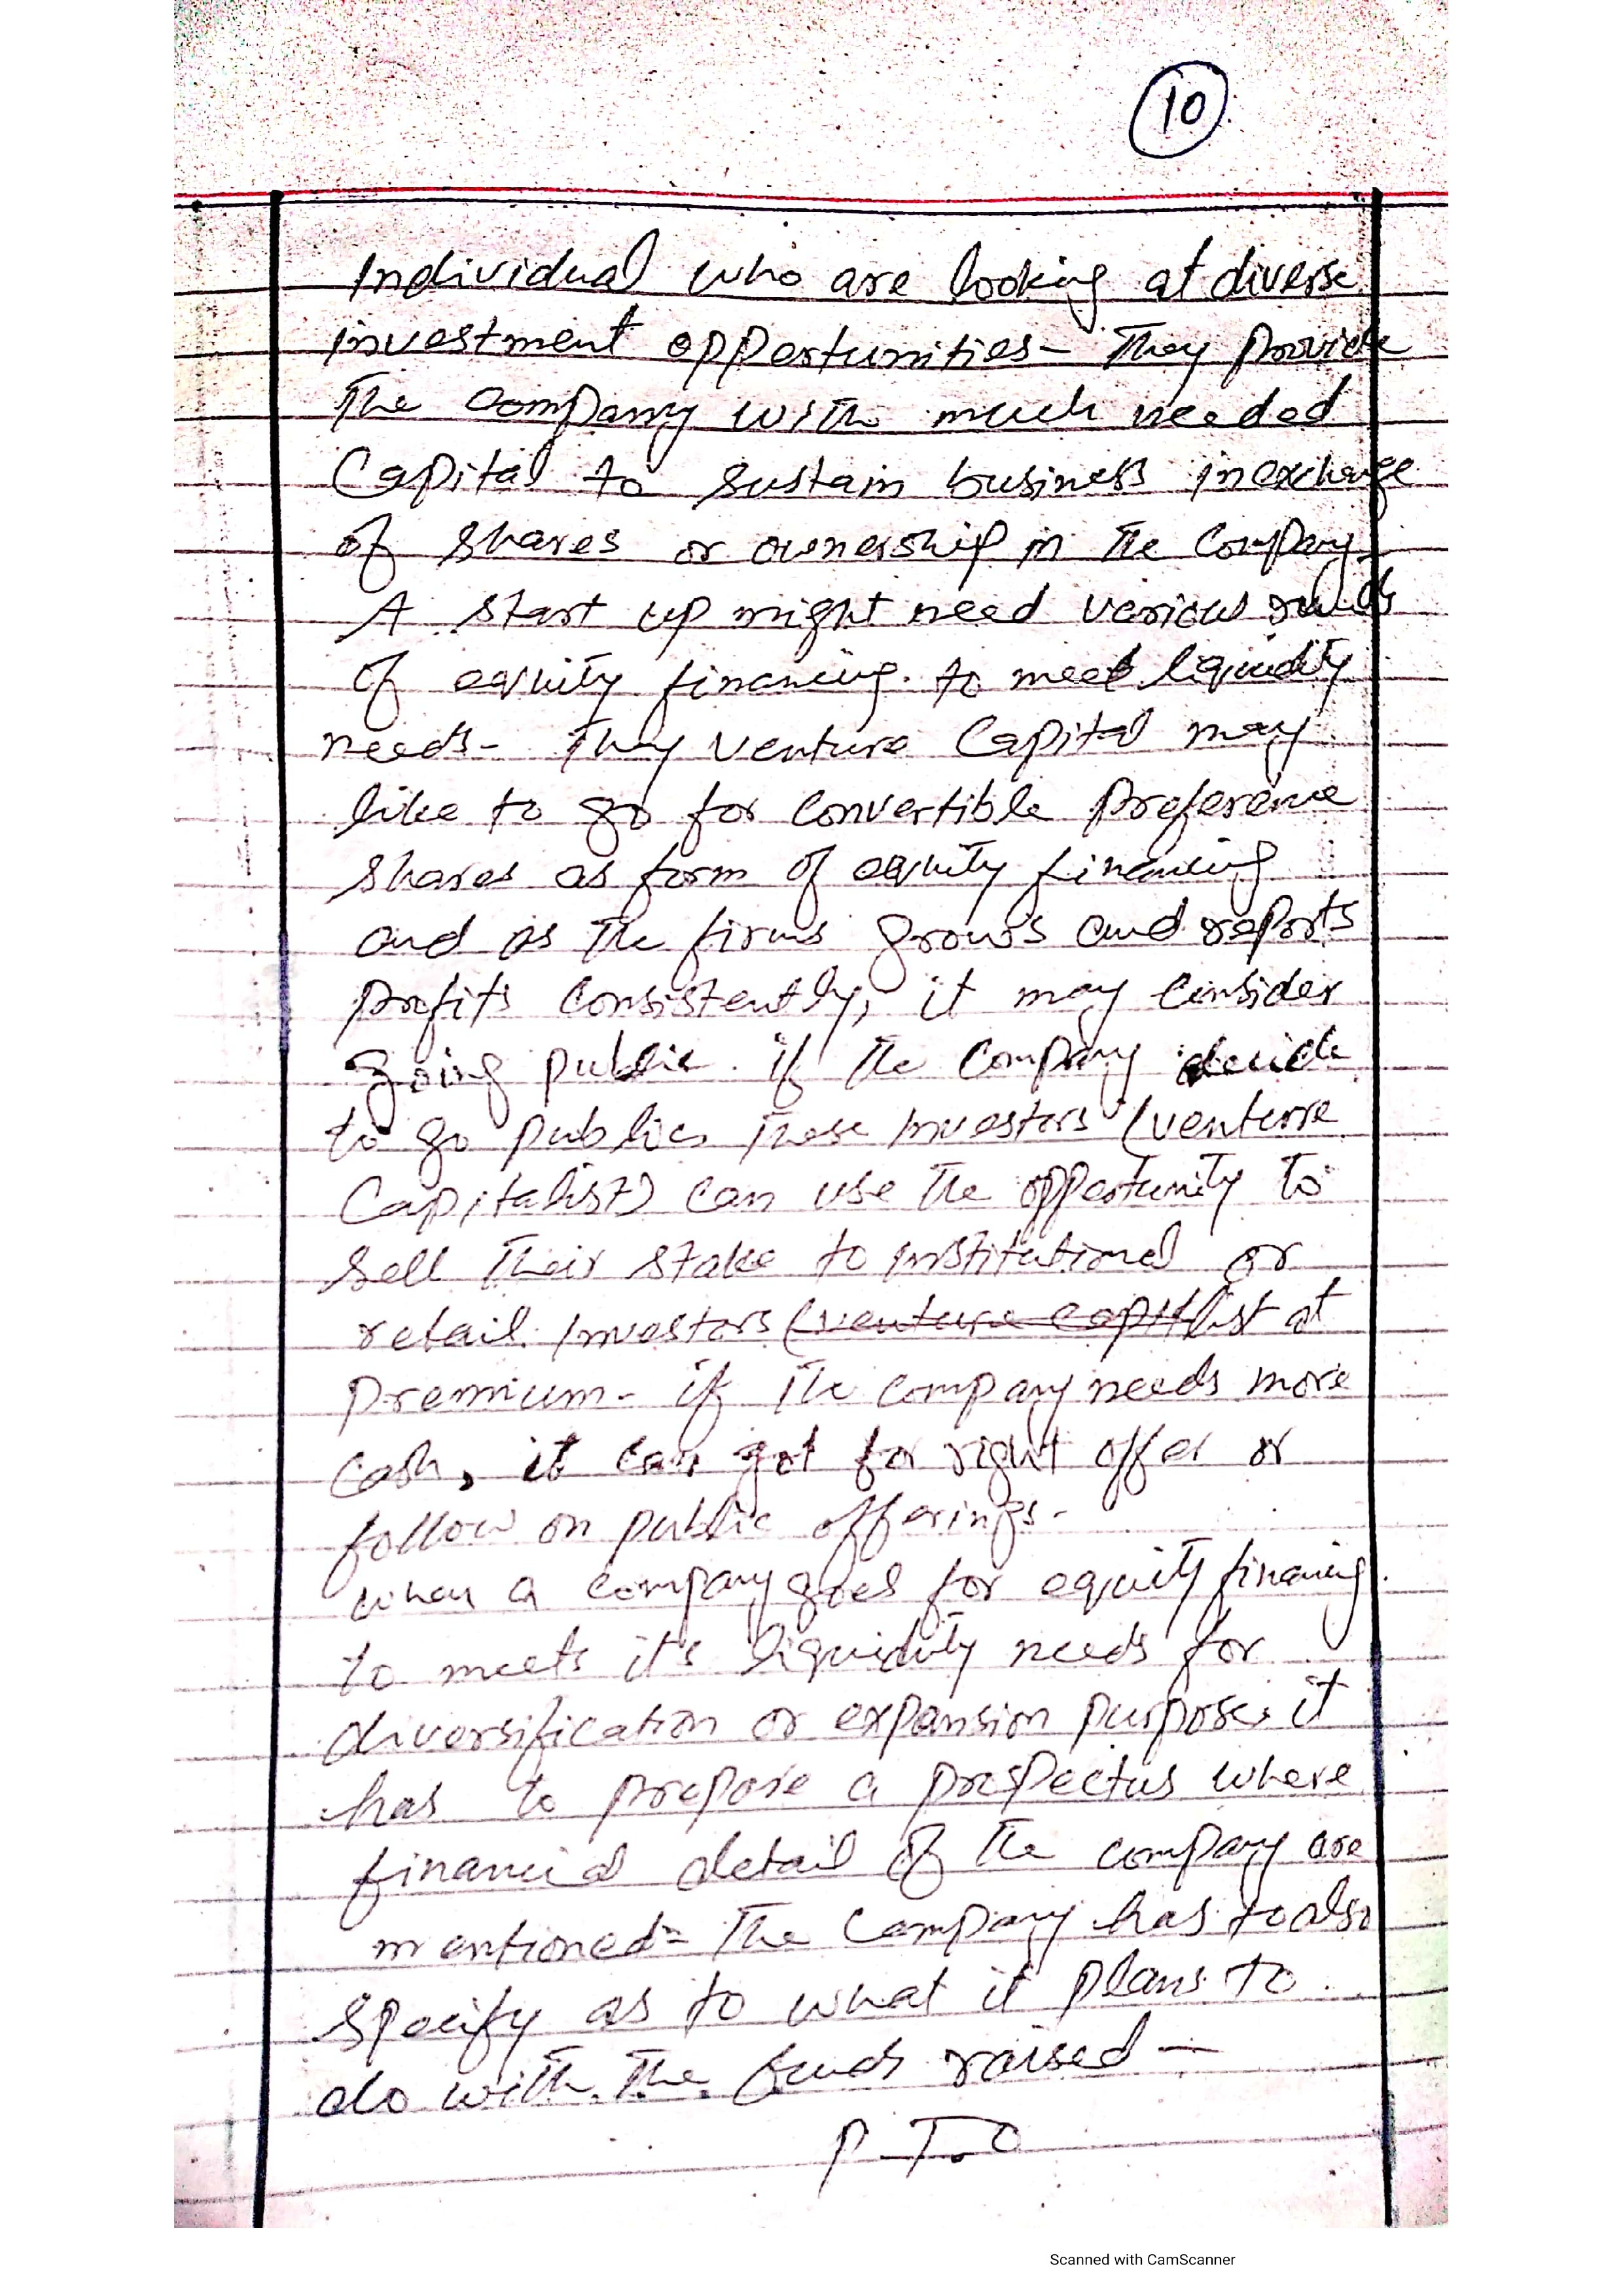 10
Individual who are looking at diverse
investment opportunities- They provide
The company with much needed
Capital to sustain business in exchange
of shares or ownership in The Company
A start up might need various
of equity financing. to meet liquidity
needs- They venture Capital may
like to go for convertible preference
shares as form of equity financing
and as The firms grows and reports
profits consistently, it may consider
going public. if The Company decide
to go public. These investors (venture
Capitalist) can use The opportunity to
sell Their stake to institutional or
retail investors (venture capitlist at
premium- if The company needs more
cash, it can got for right offer or
follow on public offerings-
when a company goes for equity financing.
to meets it's liquidity needs for
diversification or expansion purpose. it
has to prepare a prospectus where
financial detail of The company are
mentioned- The Company has to also
specify as to what it plans to
do with The funds raised —
P.T.O
Scanned with CamScanner